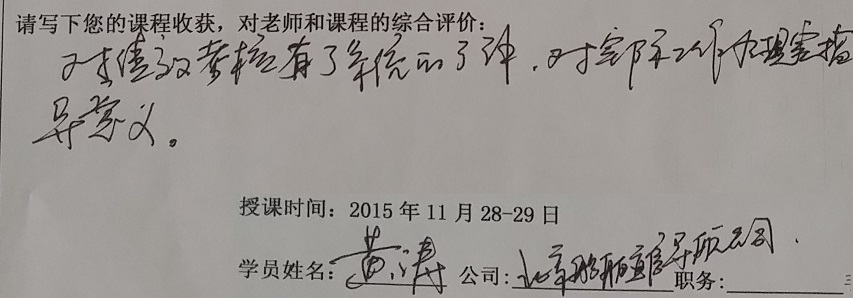 请写下您的课程收获，对老师和课程的综合评价：
对绩效考核有了系统的了解，对实际工作有现实指
导意义。
授课时间：2015年11月28-29日
学员姓名：黄涛 公司：北京 导航公司 职务：